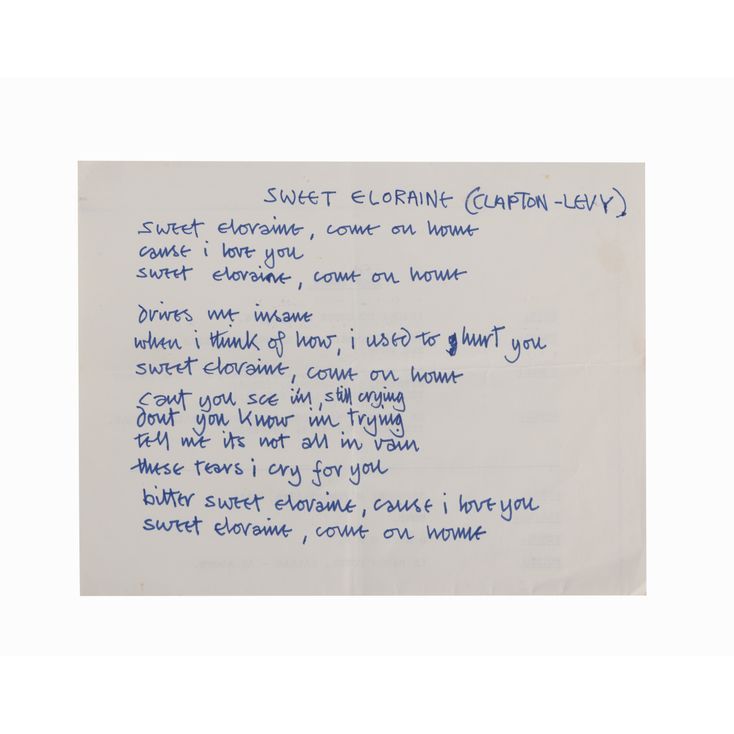 SWEET ELORAINE (CLAPTON-LEVY)
sweet eloraine, come on home
cause i love you
sweet eloraine, come on home
drives me insane
when i think of how, i used to hurt you
sweet eloraine, come on home
cant you see i'm, still crying
dont you know im trying
tell me its not all in vain
these tears i cry for you
bitter sweet eloraine, cause i love you
sweet eloraine, come on home